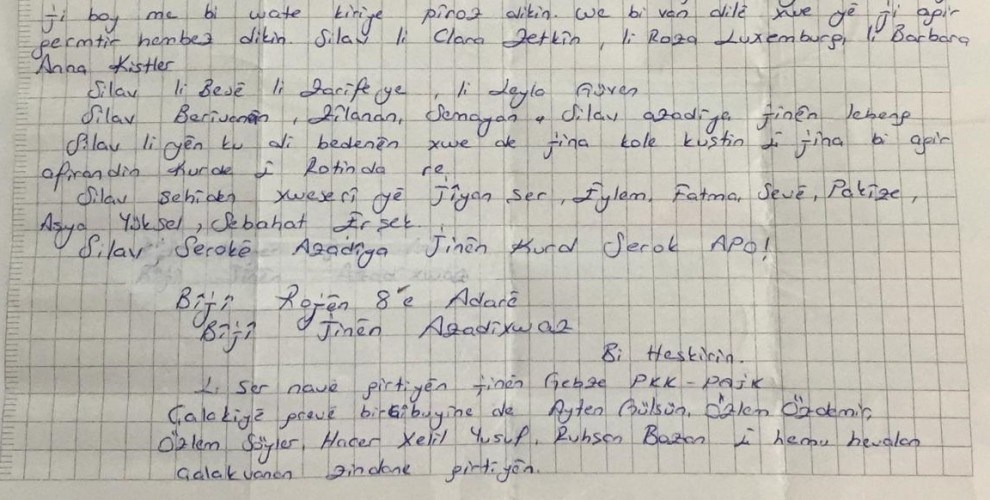 ji boy me bi wate kirîye pîroz dikin. We bi van dilê xwe yê ji agir
germtir hembez dikin. Silav li Clara Zetkîn, li Roza Luxemburg, li Barbara
Anna Kistler
Silav li Besê li Zarîfeye, li Leyla Güven
Silav Berivanan, Zîlanan, Semayan. Silav azadîya jinên lebenp
Silav li yên ku di bedenên xwe de jina kole kustin û jina bi agir
afirandin Kurde û Rotinda re,
Silav sehîden xweserî yê Jîyan ser, Eylem, Fatma, Sevê, Pakîze,
Asya Yüksel, Sebahat Ersek.
Silav, Serokê Azadîya Jinên Kurd Serok APO!
Bîjî Rojên 8'e Adarê
Bîjî Jinên Azadîxwaz
Bi Heskirin.
Li ser navê girtiyên jinên Gebze PKK-PAJK
Çalakîyê grevê birçîbuyîne de Ayten Gülsün, Özlem Özdemir,
Özlem Söyler, Hacer Xelil Yusuf, Ruhsen Bazan û hemu hevalen
Çalakvanen zindane girtiyên.